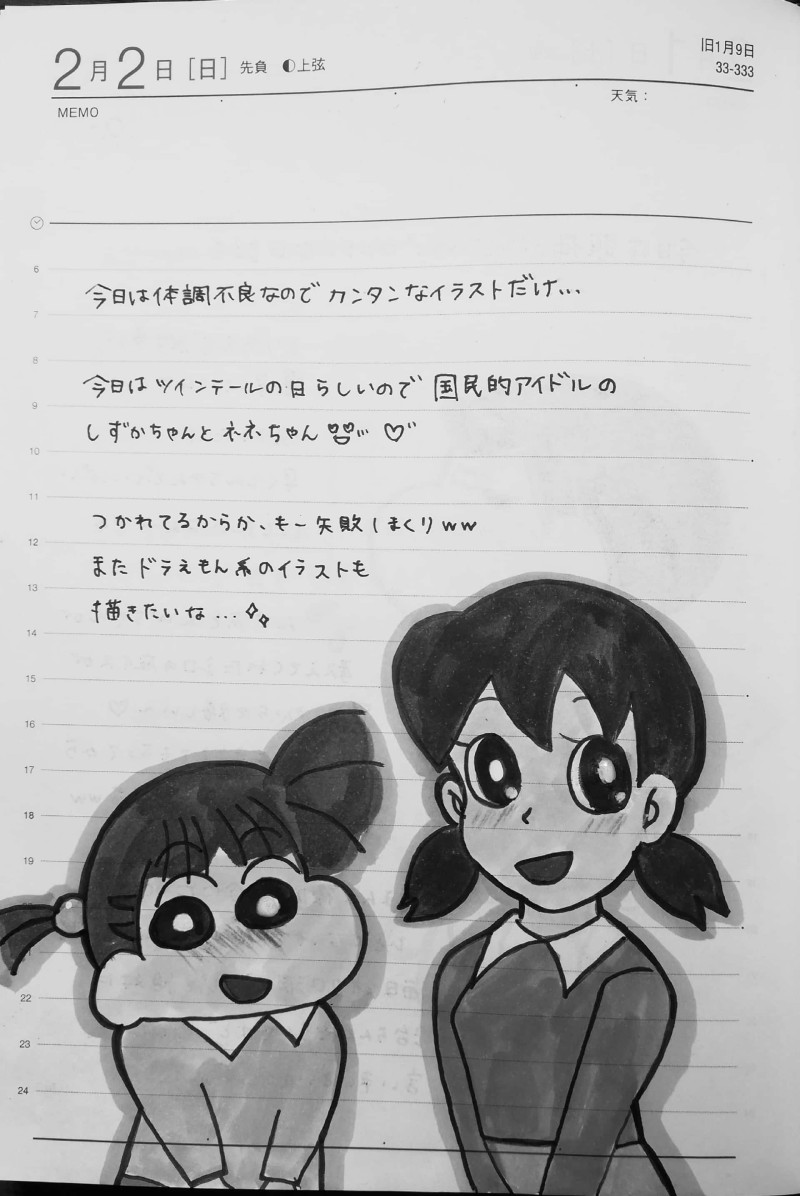 2月2日［日］ 先負 上弦
旧1月9日
33-333
天気：
MEMO
6
今日は体調不良なので カンタンなイラストだけ...
7
8
今日は ツインテールの日らしいので 国民的アイドルの
9
しずかちゃんと ネネちゃん
10
11
つかれてるからか、もー失敗しまくりww
12
また ドラえもん系のイラストも
13
描きたいな...
14
15
16
17
18
19
22
23
24